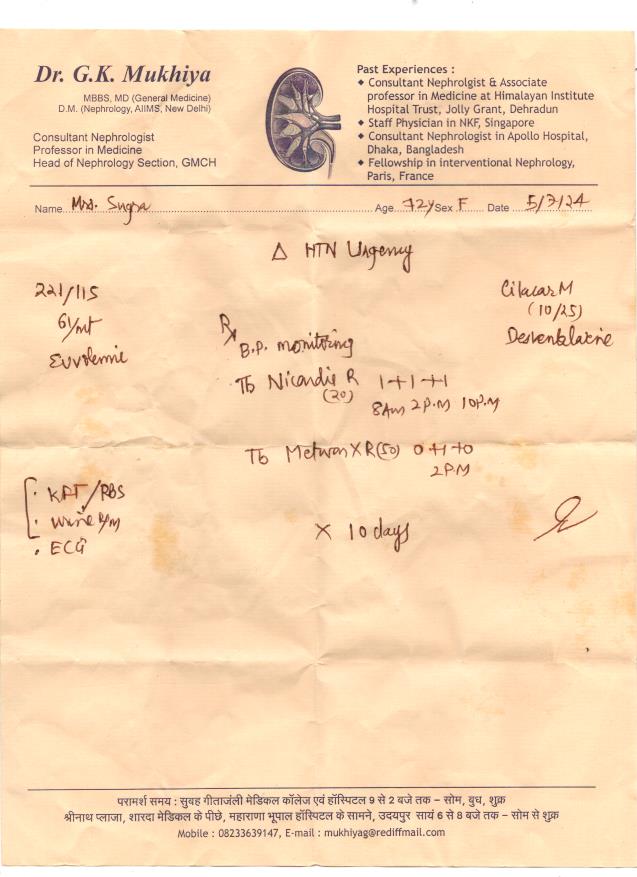 Dr. G.K. Mukhiya
MBBS, MD (General Medicine)
D.M. (Nephrology, AIIMS, New Delhi)
Consultant Nephrologist
Professor in Medicine
Head of Nephrology Section, GMCH
Past Experiences :
◆ Consultant Nephrolgist & Associate
professor in Medicine at Himalayan Institute
Hospital Trust, Jolly Grant, Dehradun
◆ Staff Physician in NKF, Singapore
◆ Consultant Nephrologist in Apollo Hospital,
Dhaka, Bangladesh
◆ Fellowship in interventional Nephrology,
Paris, France
Name Mrs. Sugra Age 72y Sex F Date 5/7/24
Δ HTN Urgency
221/115
61/mt
Euvolemic
Cilacar M
(10/25)
Rx
B.P. monitoring
Tb Nicardia R 1+1+1
(20) 8Am 2P.M 10P.M
Tb Metwan XR (50) 0+1+0
2PM
· KFT/RBS
· Urine R/M
· ECG
X 10 days
परामर्श समय : सुबह गीताजंली मेडिकल कॉलेज एवं हॉस्पिटल 9 से 2 बजे तक – सोम, बुध, शुक्र
श्रीनाथ प्लाजा, शारदा मेडिकल के पीछे, महाराणा भूपाल हॉस्पिटल के सामने, उदयपुर सायं 6 से 8 बजे तक – सोम से शुक्र
Mobile : 08233639147, E-mail : mukhiyag@rediffmail.com